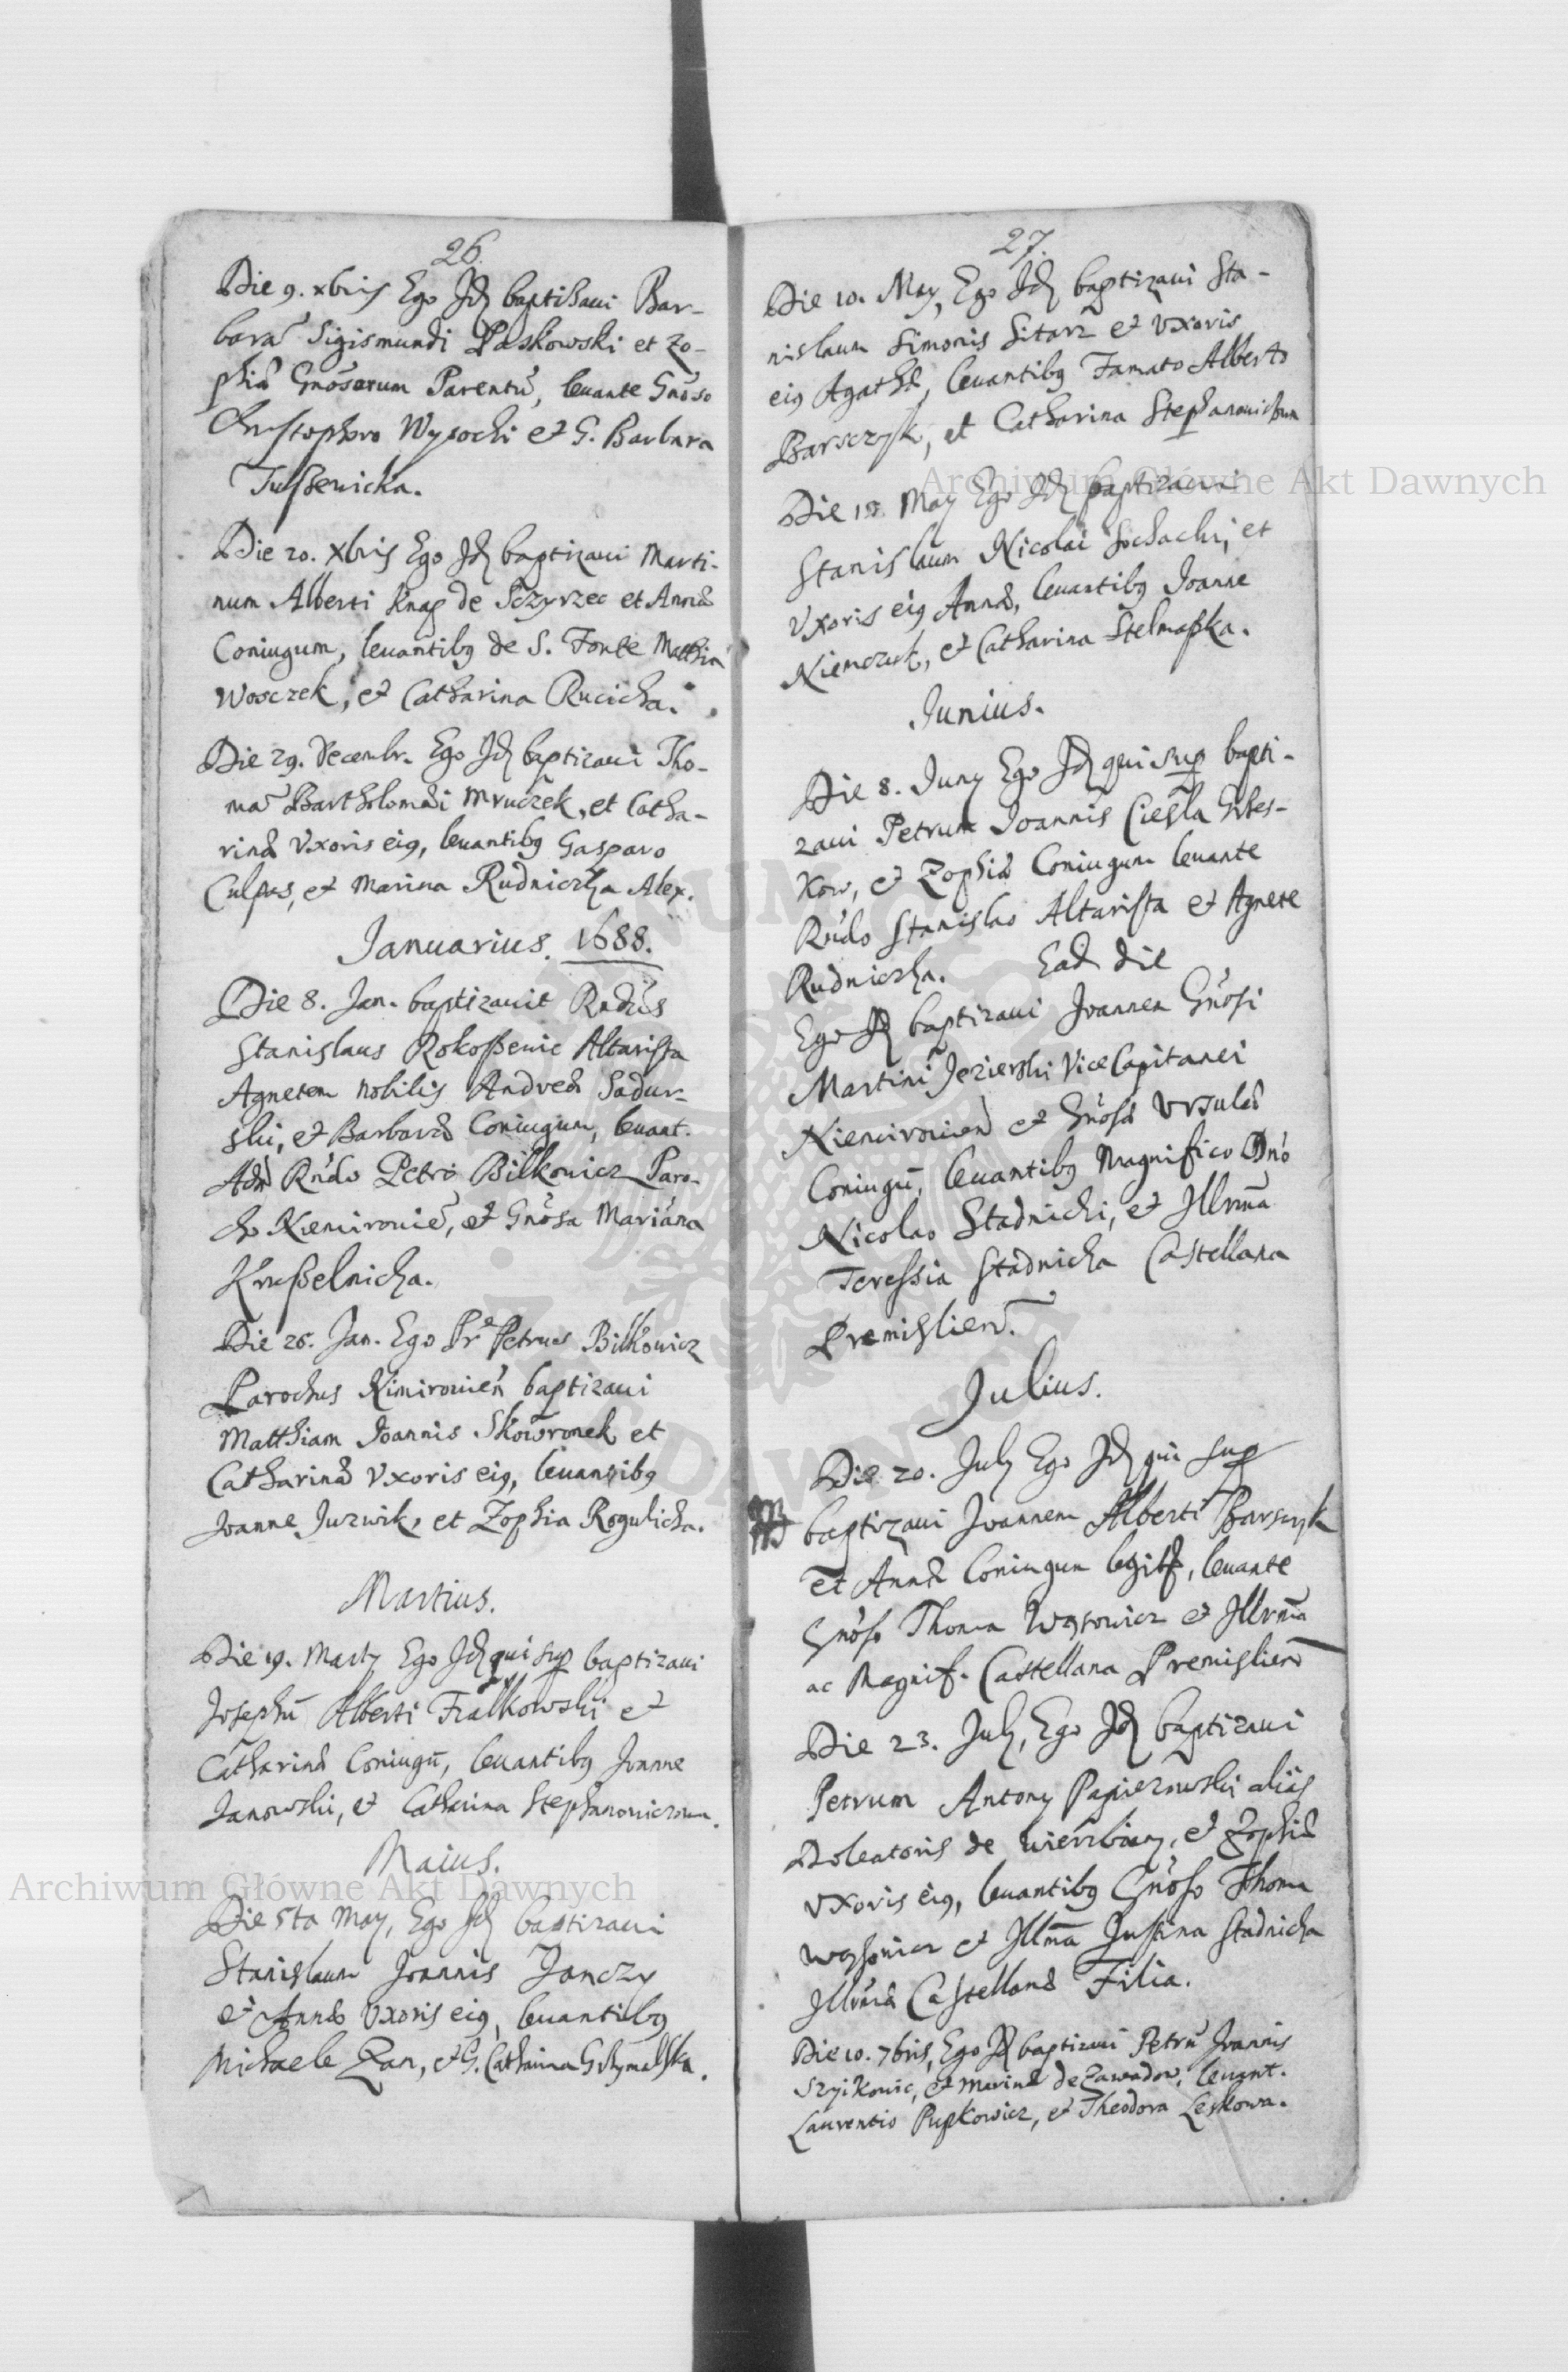 26.
Die 9. xbris Ego Jd baptisavi Bar-
bara Sigismundi Paskowski et Zo-
phiæ Gnosorum Parentũ, levante Gnoso
Christophoro Wysocki et G. Barbara
Tussewicka.
Die 20. Xbris Ego Jd baptizavi Marti-
num Alberti Knap de Sczyrzec et Annæ
Coniugum, levantibg de S. Fonte Matthia
Wosczek, et Catharina Rucicha.
Die 29. Decembr. Ego Jd baptizavi Tho-
ma Bartholomæi Mruczek, et Catha-
rinæ Vxoris eig, levantibg Gasparo
Culpas, et Marina Rudniczka Alex.
Januarius. 1688.
Die 8. Jan. baptizavit Rndus
Stanislaus Rokossewic Altarista
Agnetem nobilis Andreæ Sadur-
ski, et Barbaræ Coniugum, levant.
Adm Rndo Petro Bilkowicz Paro-
cho Niemirovie, et Gnosa Mariana
Krusselnicka.
Die 26. Jan. Ego Pr Petrus Bilkowicz
Parochus Nimirovien baptizavi
Matthiam Joannis Skowronek et
Catharinæ Vxoris eig, levantibg
Joanne Juzwik, et Zophia Rogulicha.
Martius.
Die 19. Marty Ego Jd qui sup baptizavi
Josephũ Alberti Fialkowski et
Catharinæ Coniugũ, levantibg Joanne
Janowski, et Catharina Stephanowiczowa.
Maius.
Die 5ta May, Ego Jd baptizavi
Stanislaum Joannis Janczy
et Annæ Vxoris eig, levantibg
Michaele Pan, et G. Catharina
27.
Die 10. May, Ego Jd baptizavi Sta-
nislaum Simonis Sitarz et Vxoris
eig Agathæ, levantibg Famato Alberto
Barsczyk, et Catharina
Die May Ego Jd baptizavi
Stanislaum Nicolai Sochacki, et
Vxoris eig Annæ, levantibg Joanne
Niemczuk, et Catharina Stelmaska.
Junius.
Die 8. Juny Ego Jd qui sup bapti-
zavi Petrum Joannis Ciesla
et Zophiæ Coniugum levante
Rndo Stanislao Altarista et Agnete
Rudniczka. Ead die
Ego Jd baptizavi Joannem Gnosi
Martini Jezierski Vice Capitanei
Niemirovien et Gnosæ Vrsulæ
Coniugũ, levantibg Magnifico Dno
Nicolao Stadnicki, et Illrma
Teressia Stadnicka Castellana
Premislien.
Julius.
Die 20. July Ego Jd qui sup
baptizavi Joannem Alberti Barsczyk
et Annæ Coniugum legit, levante
Gnoso Thoma Wąsowicz et Illrma
ac Magnif. Castellana Premislien
Die 23. July, Ego Jd baptizavi
Petrum Antony Papierowski alias
Doleatoris de Wierzbiany, et Zophiæ
Vxoris eig, levantibg Gnoso Thoma
Wąssowicz et Illma Justina Stadnicka
Illrmæ Castellanæ Filia.
Die 10. 7bris, Ego Jd baptizavi Petrũ Joannis
Szyikowic, et Marinæ de Zawadow, levant.
Laurentio Pupkowicz, et Theodora Leskowa.
Archiwum Główne Akt Dawnych
Archiwum Główne Akt Dawnych